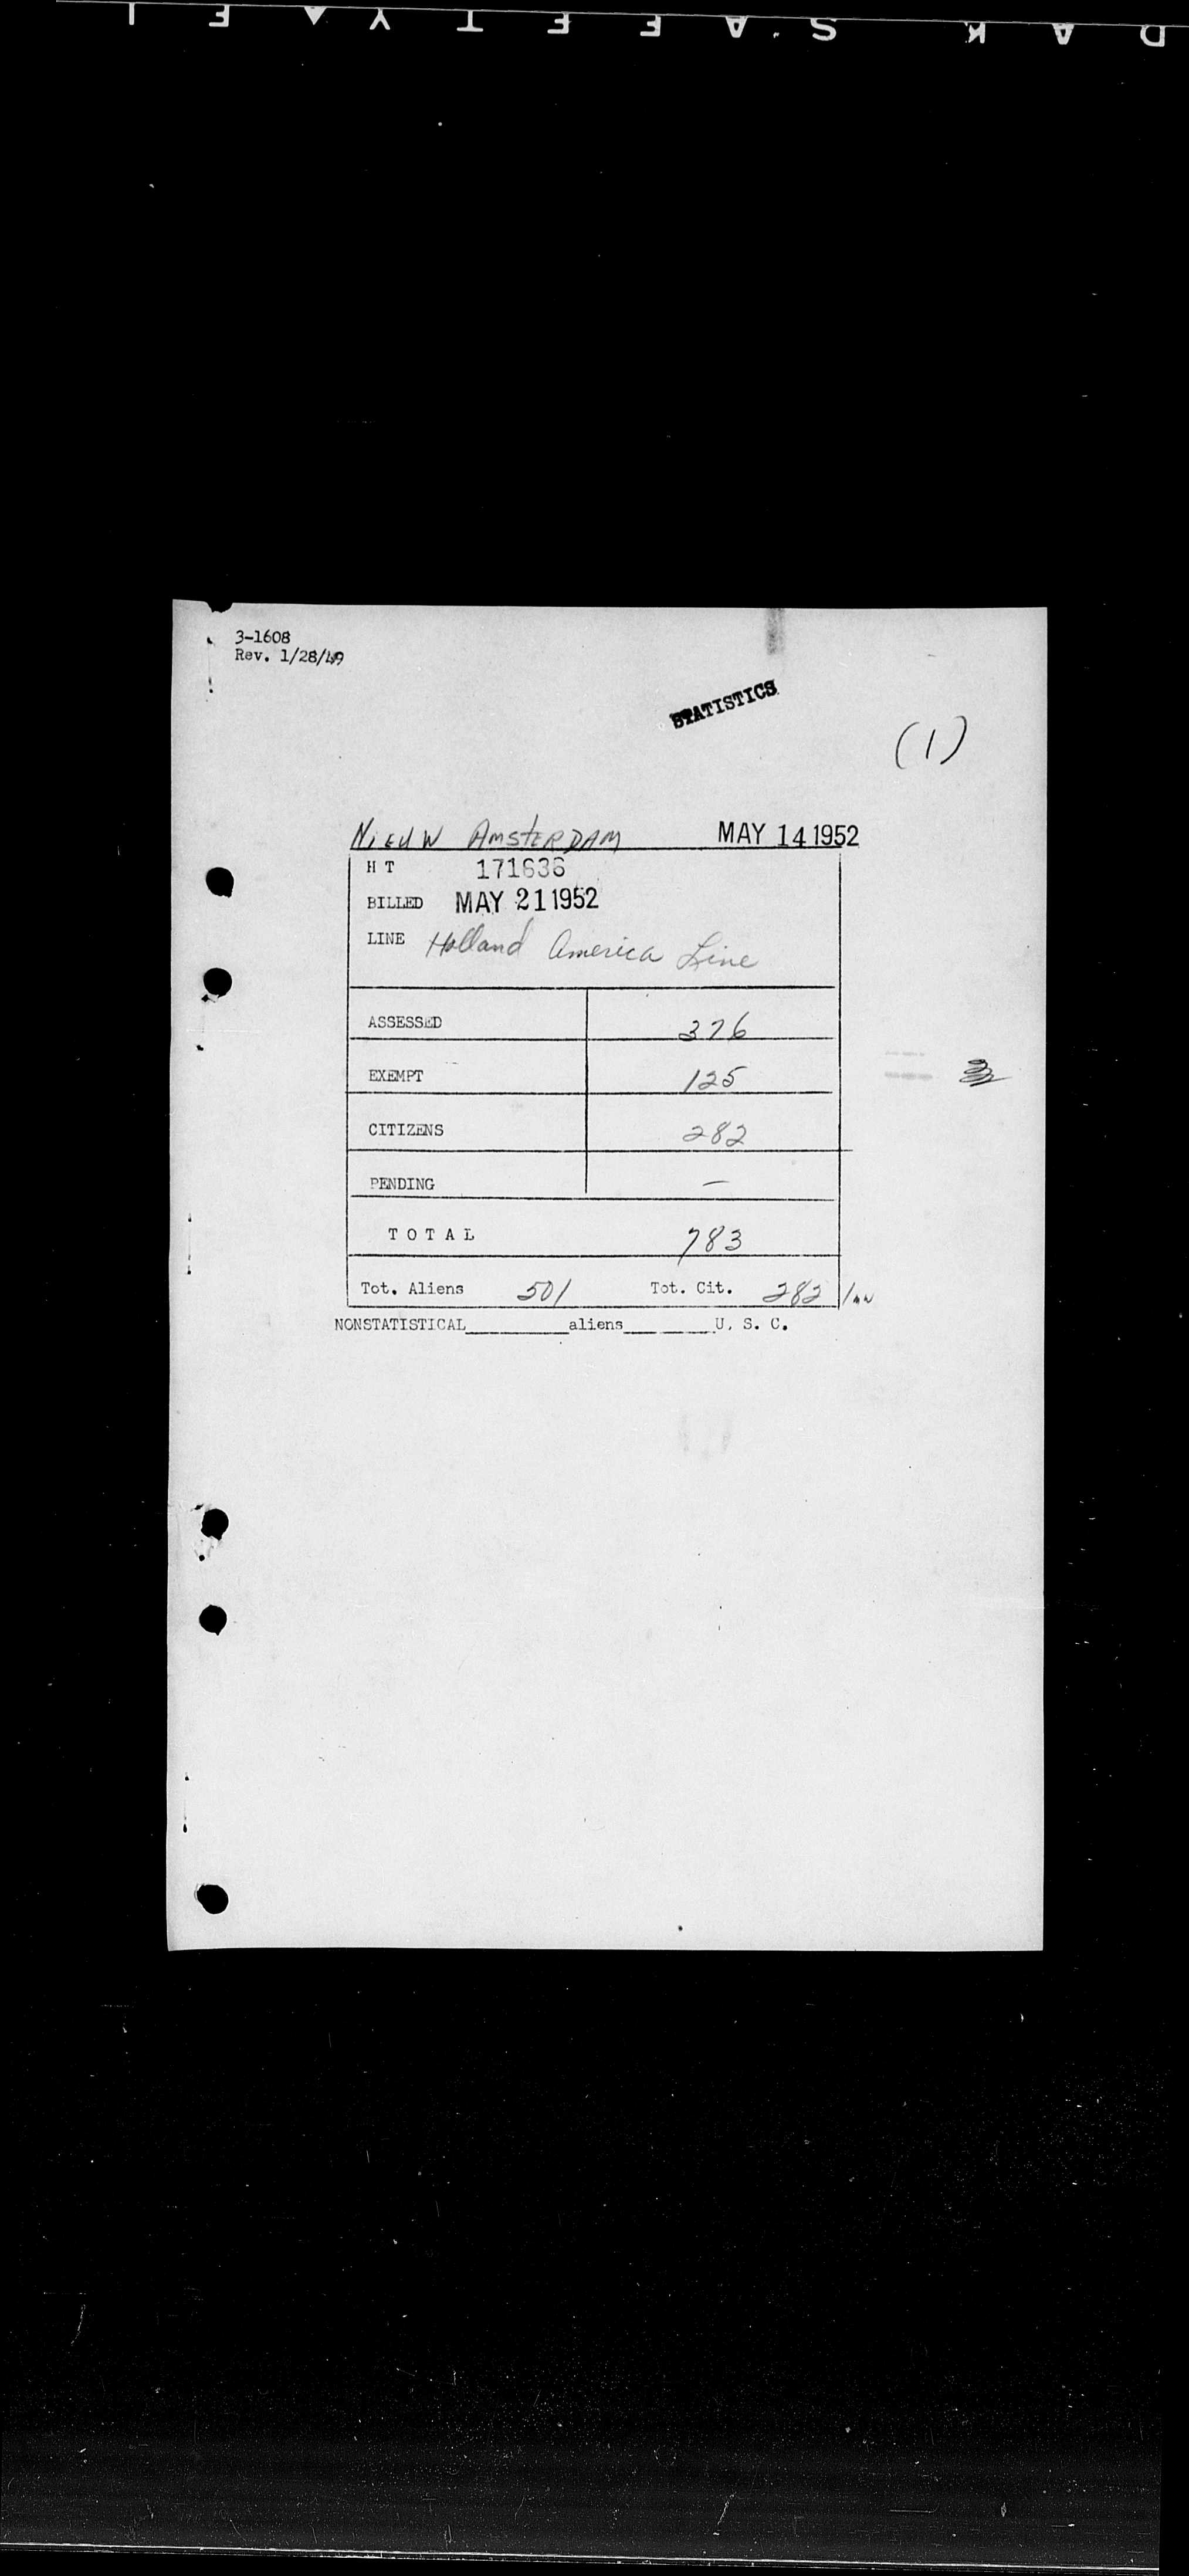 3-1608
Rev. 1/28/49
STATISTICS
(1)
NIEUW AMSTERDAM MAY 14 1952
H T 171636
BILLED MAY 21 1952
LINE Holland America Line
ASSESSED 376
EXEMPT 125
CITIZENS 282
PENDING —
TOTAL 783
Tot. Aliens 501 Tot. Cit. 282
NONSTATISTICAL________aliens_______U. S. C.